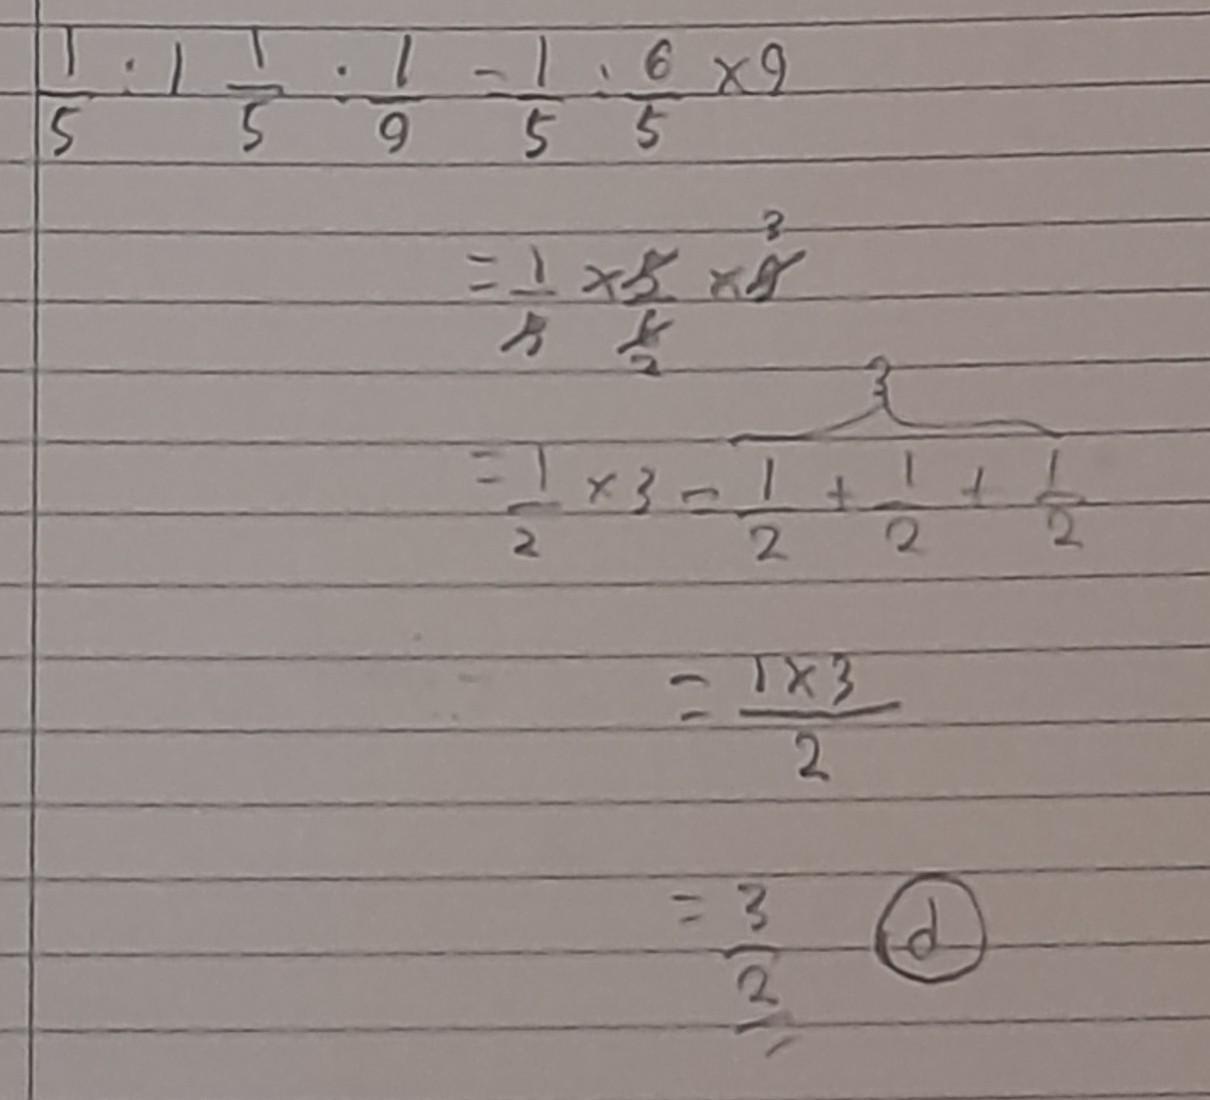 1/5 : 1 1/5 : 1/9 = 1/5 : 6/5 × 9
= 1/5 × 5/6 × 9 3
2
3
= 1/2 × 3 = 1/2 + 1/2 + 1/2
= 1×3/2
= 3/2 d